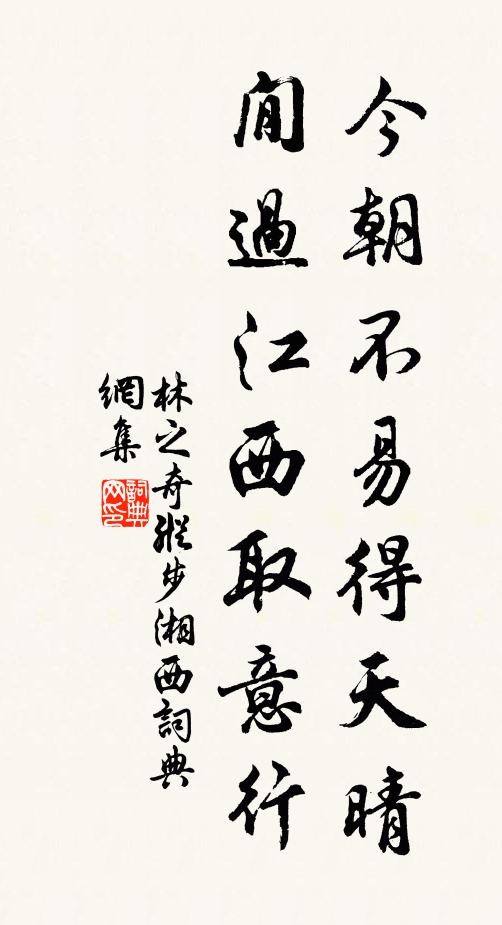 今朝不易得天晴
閒過江西取意行
林之奇縱步湘西詞典
網集
詞典
网印